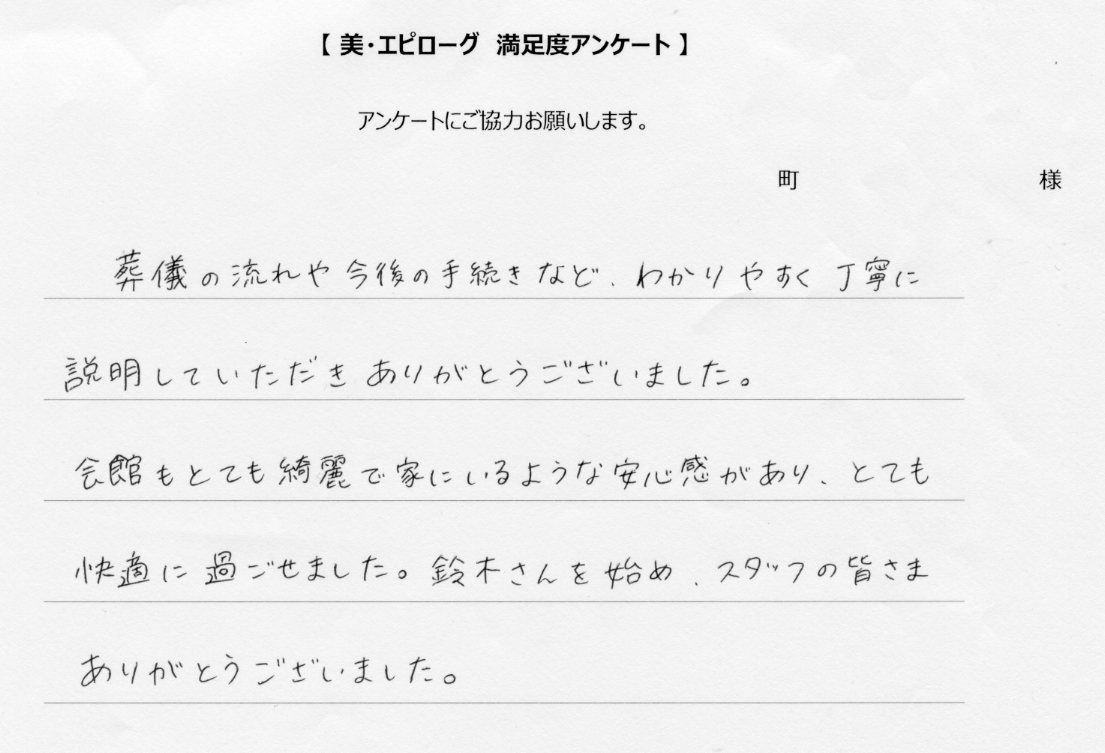 【 美・エピローグ 満足度アンケート 】
アンケートにご協力お願いします。
町 様
葬儀の流れや今後の手続きなど、わかりやすく丁寧に
説明していただきありがとうございました。
会館もとても綺麗で家にいるような安心感があり、とても
快適に過ごせました。鈴木さんを始め、スタッフの皆さま
ありがとうございました。